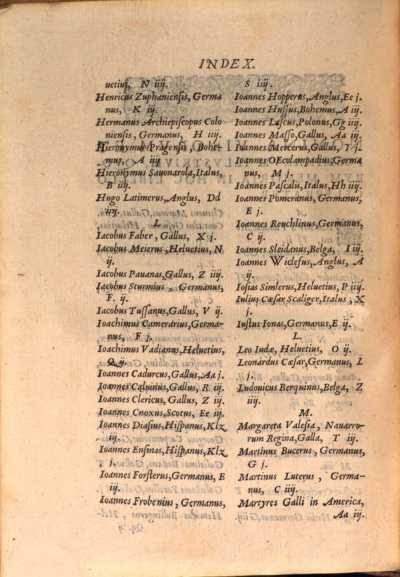 INDEX.
uetius, N iiij.
Henricus Zuphaniensis, Germa
nus, K iij.
Hermanus Archiepiscopus Colo
niensis, Germanus, H iiij.
Hieronymus Pragensis, Bohe-
mus, A iij
Hieronymus Sauonarola, Italus,
B iiij.
Hugo Latimerus, Anglus, Dd
Iacobus Faber, Gallus, X j.
Iacobus Meierus, Heluetius, N
ij.
Iacobus Pauanas, Gallus, Z iiij.
Iacobus Sturmius, Germanus,
F. ij.
Iacobus Tussanus, Gallus, V ij.
Ioachimus Camerarius, Germa-
nus, F j.
Ioachimus Vadianus, Heluetius,
O ij.
Ioannes Cadurcus, Gallus, Aa j.
Ioannes Caluinus, Gallus, R iij.
Ioannes Clericus, Gallus, Z ij.
Ioannes Cnoxus, Scotus, Ee iij.
Ioannes Diasius, Hispanus, Klz
iij.
Ioannes Ensinas, Hispanus, Klz
j.
Ioannes Forsterus, Germanus, E
iij.
Ioannes Frobenius, Germanus,
S iiij.
Ioannes Hopperus, Anglus, Ee j.
Ioannes Hussus, Bohemus, A iij.
Ioannes Lascus, Polonus, Gg iij.
Ioannes Masso, Gallus, Aa iij.
Ioannes Mercerus, Gallus, Y j.
Ioannes OEcolampadius, Germa
nus, M j.
Ioannes Pascalis, Italus, Hh iij.
Ioannes Pomeranus, Germanus,
E j.
Ioannes Reuchlinus, Germanus,
C ij.
Ioannes Sleidanus, Belga, I iij.
Ioannes Wiclefus, Anglus, A
ij
Iosias Simlerus, Heluetius, P iij.
Iulius Cæsar Scaliger, Italus, X
j
Iustus Ionas, Germanus, E ij.
L.
Leo Iudæ, Heluetius, O ij.
Leonardus Cæsar, Germanus, L
j.
Ludouicus Berquinus, Belga, Z
iij.
M.
Margareta Valesia, Nauarro-
rum Regina, Galla, T iij.
Martinus Bucerus, Germanus,
G j.
Martinus Luterus, Germa-
nus, C iij.
Martyres Galli in America,
Aa iij.